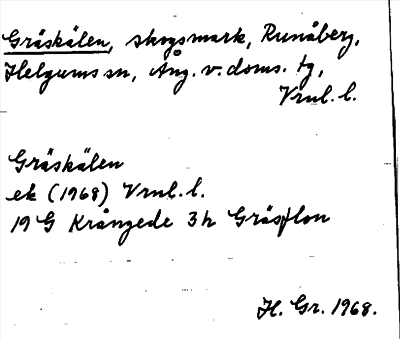 Gräskälen, skogsmark, Runåberg,
Helgums sn, Ång. v. doms. tg,
Vrnl. l.
Gräskälen
ek (1968) Vrnl. l.
19 G Krångede 3 h Gräsflon
H. Gr. 1968.